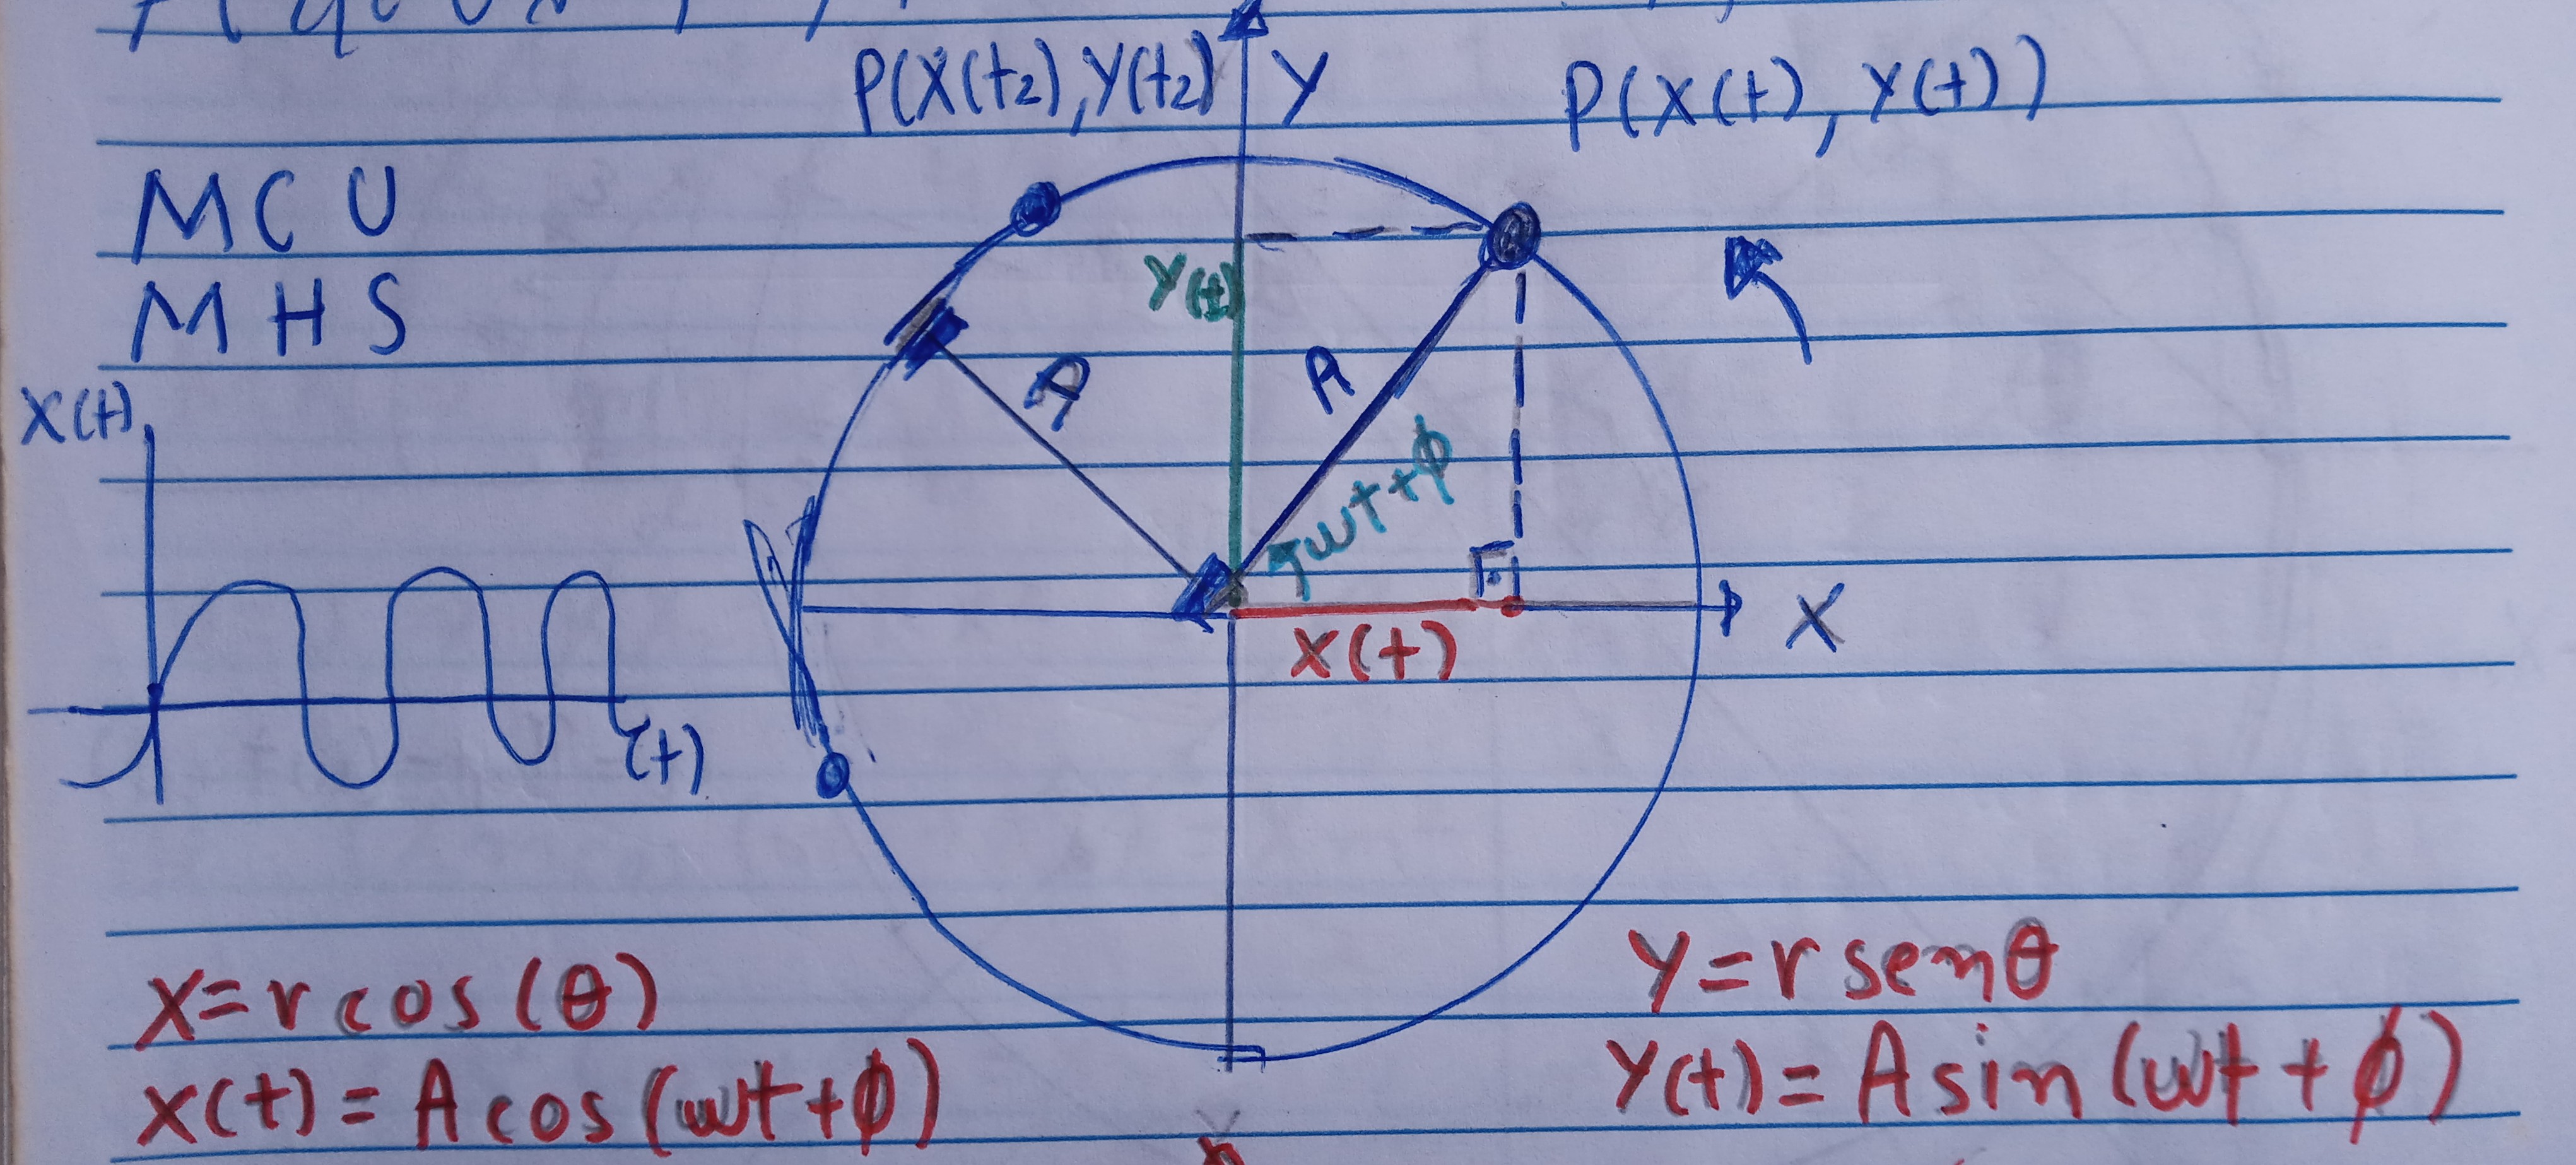 P(X(t2),Y(t2)
Y
P(X(t), Y(t))
MCU
MHS
X(t)
Y(t)
A
A
wt+ϕ
X
X(t)
(t)
X=rcos(θ)
X(t)=Acos(wt+ϕ)
Y=rsenθ
Y(t)=Asin(wt+ϕ)